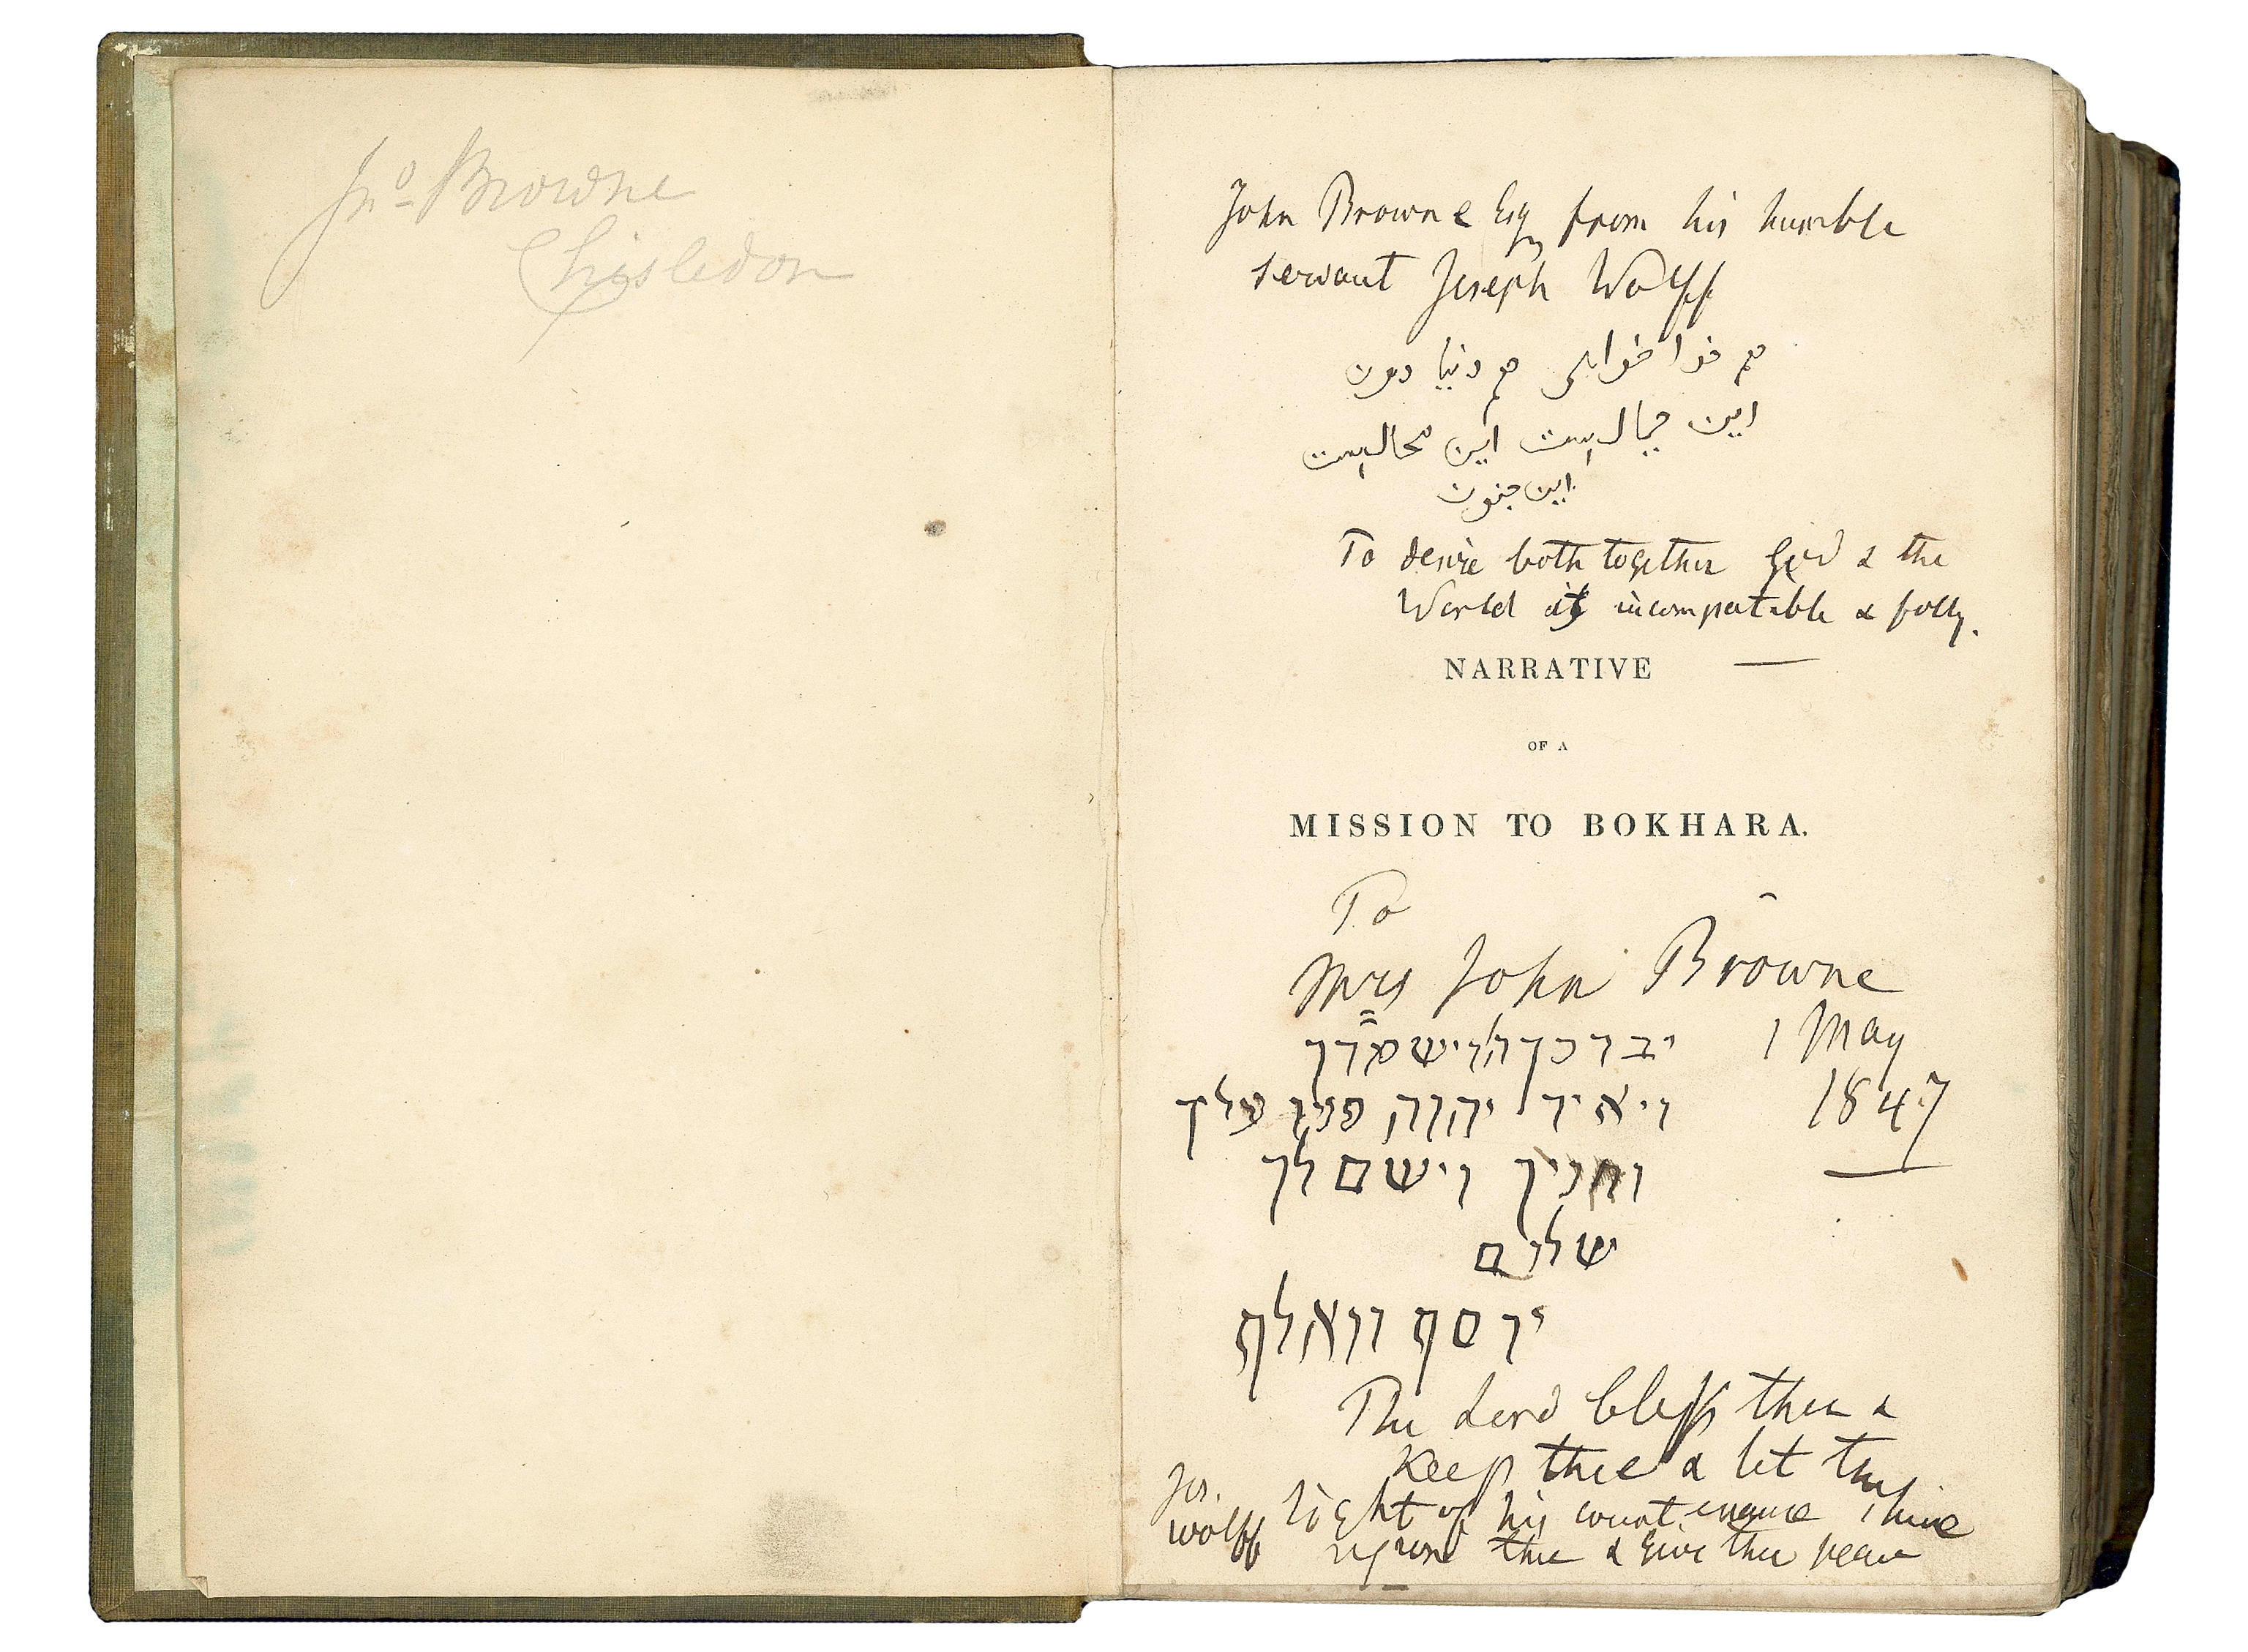 Jno Browne
Chisledon
John Browne Esq from his humble
servant Joseph Wolff
هم خدا خواهی هم دنیا دون
این خیالیست این محالیست
این جنون
To desire both together God & the
World is incompatible & folly.
NARRATIVE
OF A
MISSION TO BOKHARA.
To
Mrs John Browne
יברכך יי וישמרך 1 May
ויאיר יהוה פניו עליך 1847
וחניך וישם לך
שלום
יוסף וואלף
The Lord bless thee &
Keep thee & let the
Jos. light of his countenance shine
Wolff upon thee & give thee peace